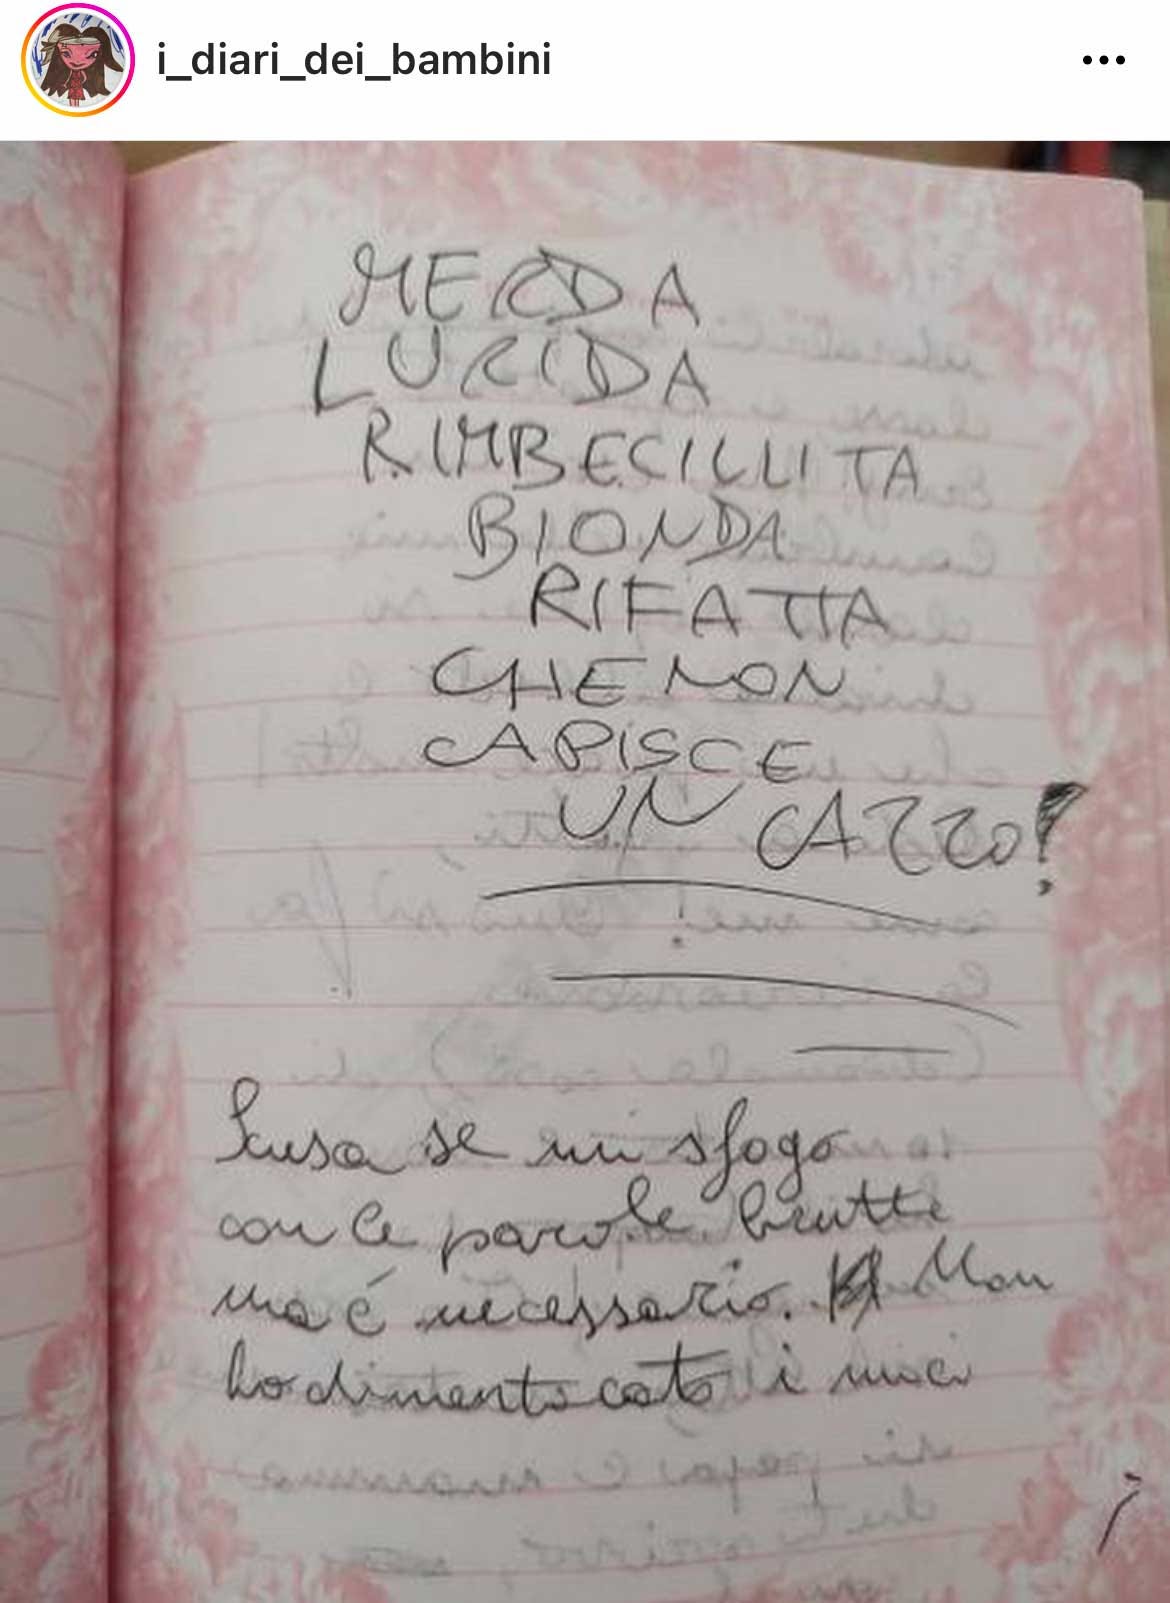 i_diari_dei_bambini
MERDA
LURIDA
RIMBECILLITA
BIONDA
RIFATTA
CHE NON
CAPISCE
UN CAZZO!
Scusa se mi sfogo
con le parole brutte
ma é necessario. Non
ho dimenticato i miei